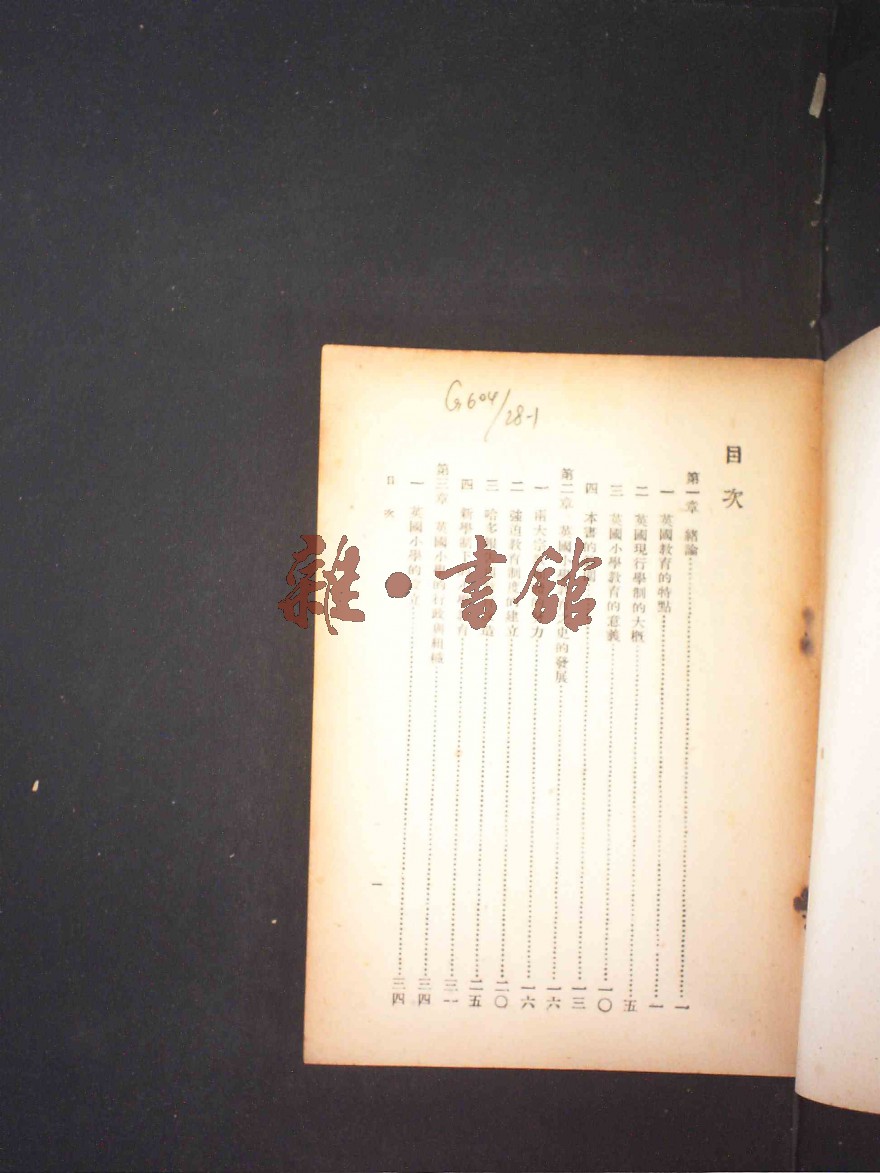 G604/28-1
目次
第一章 緒論 一
一 英國教育的特點 一
二 英國現行學制的大概 五
三 英國小學教育的意義 一〇
四 本書的 一三
第二章 英國 史的發展 一六
一 兩大宗 力 一六
二 強迫教育制度 建立 二〇
三 哈多報 二五
四 新學 育 三一
第三章 英國小學的行政與組織 三四
一 英國小學的 立 三四
目次
一
雜·書館